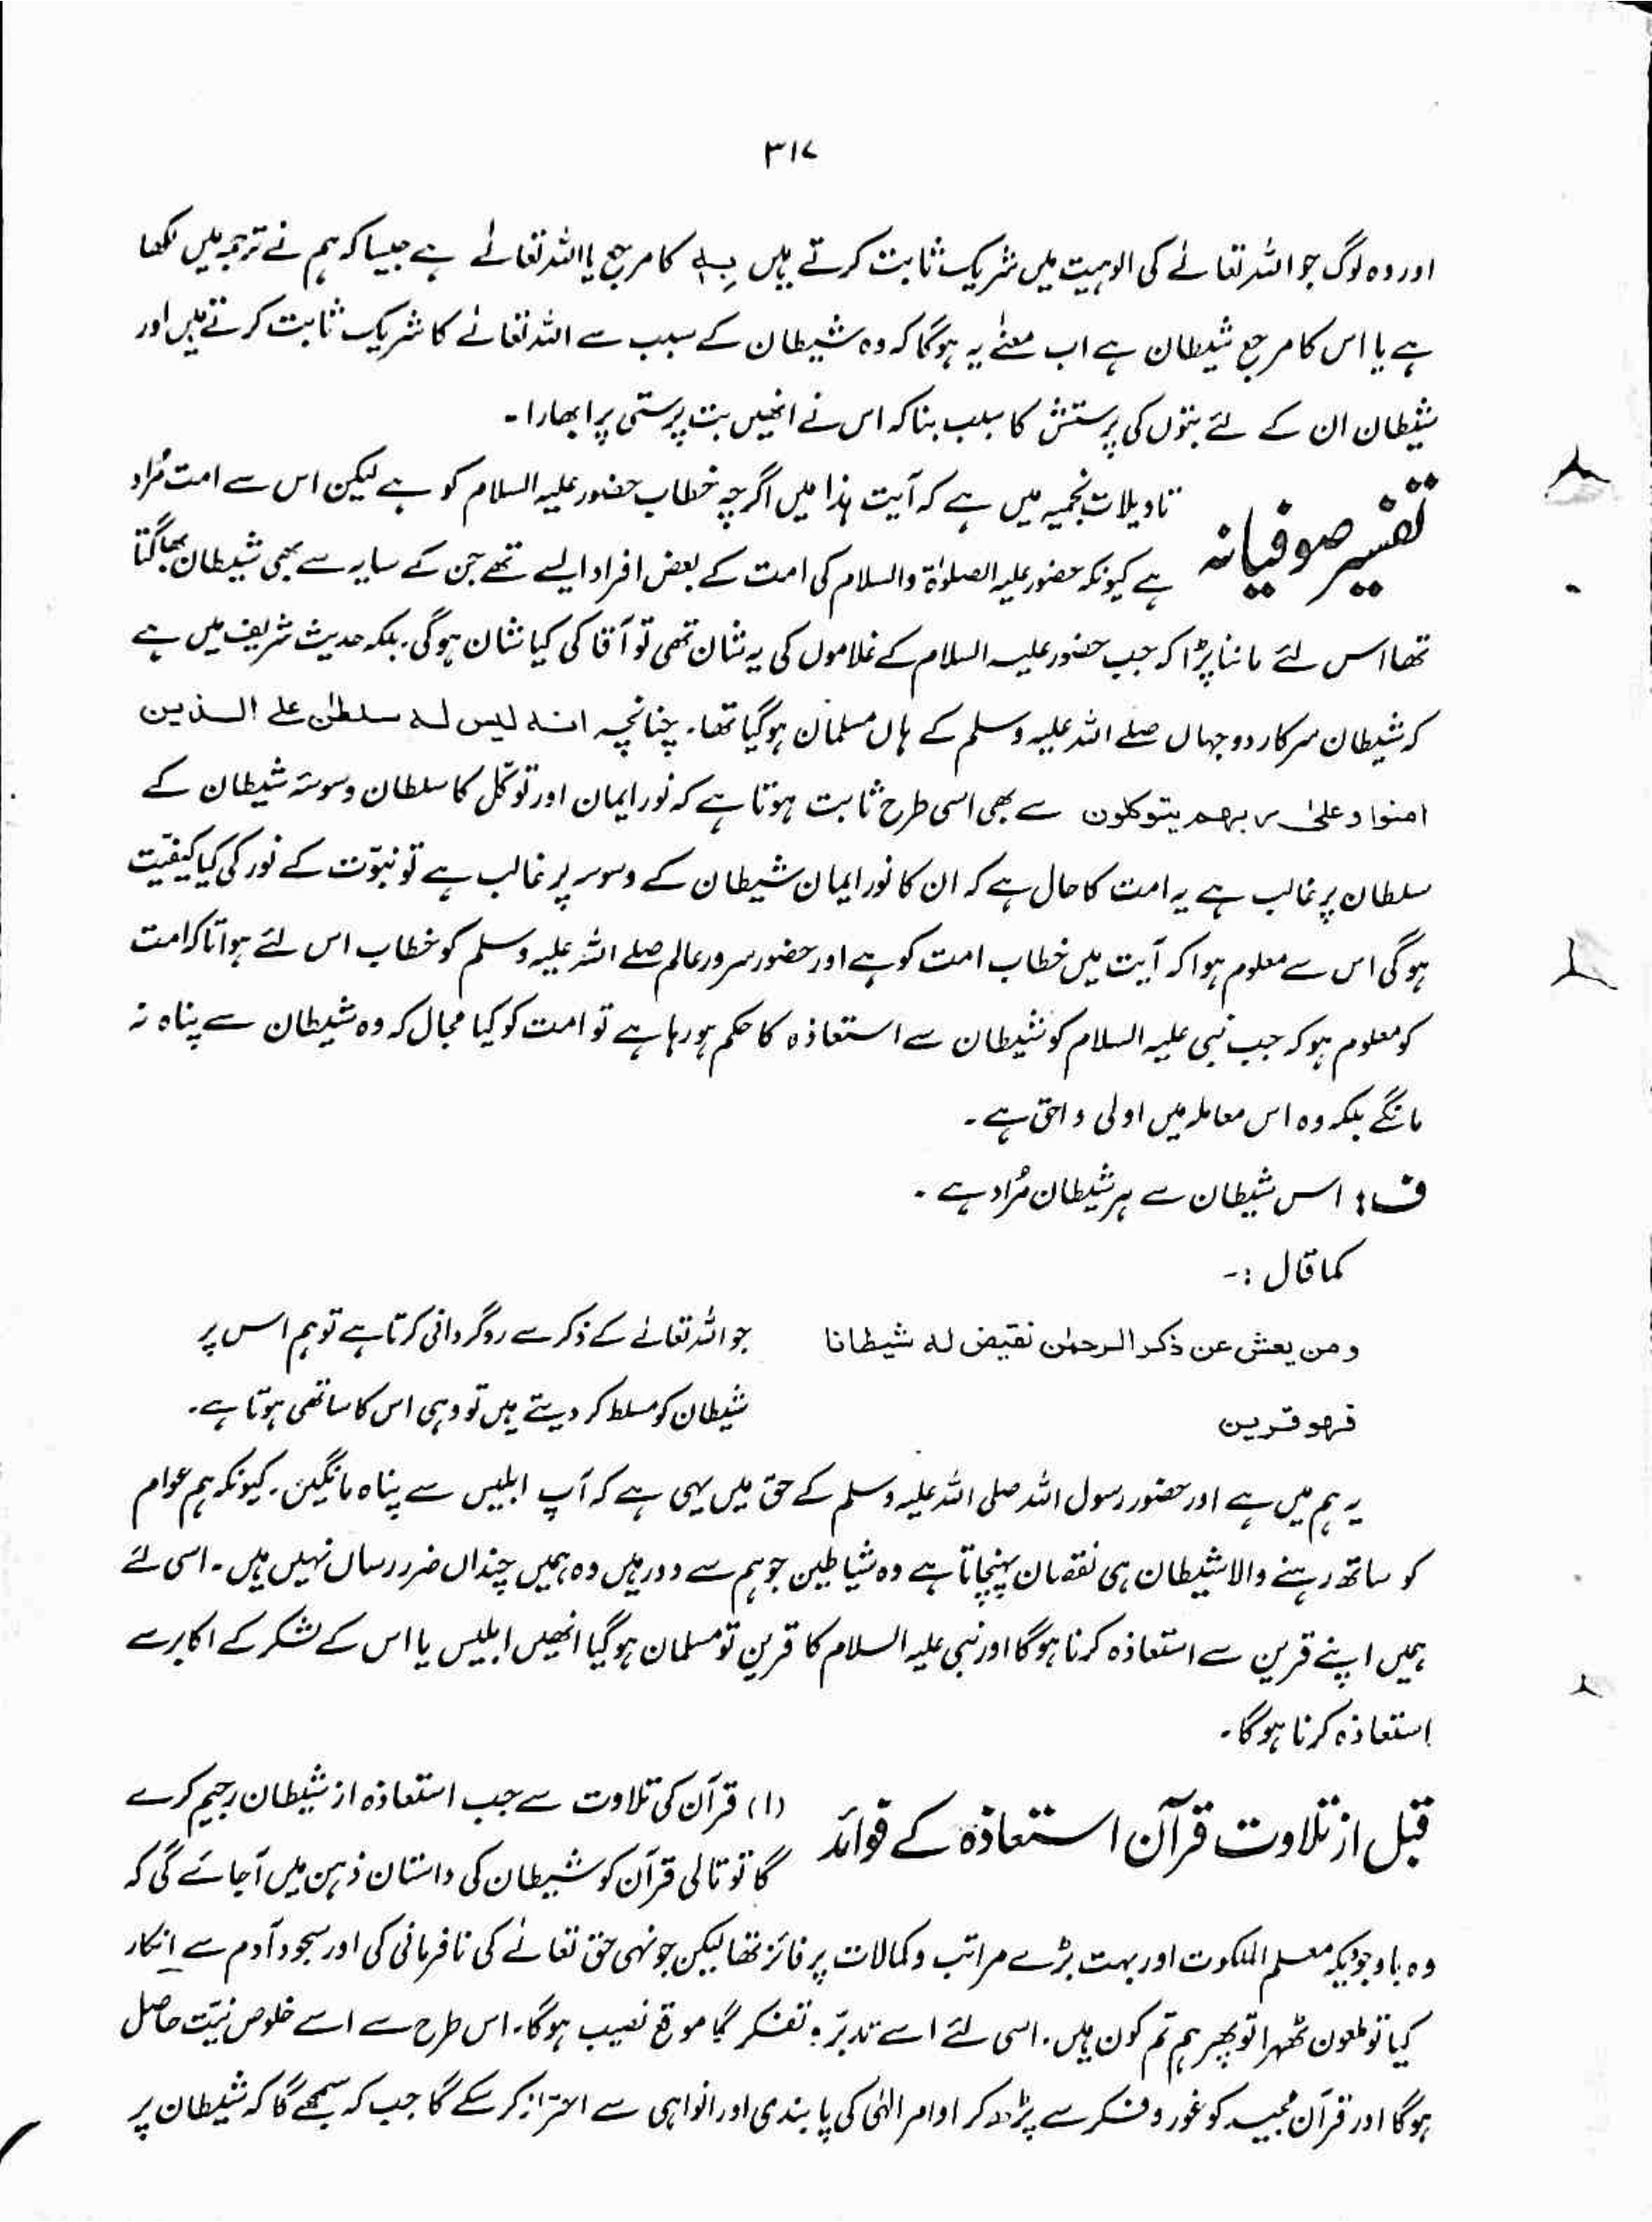 ۳۱۷
اور وہ لوگ جو اللہ تعالےٰ کی الوہیت میں شریک ثابت کرتے ہیں بِہٖ کا مرجع یا اللہ تعالےٰ ہے جیسا کہ ہم نے ترجمہ میں لکھا
ہے یا اس کا مرجع شیطان ہے اب معنےٰ یہ ہوگا کہ وہ شیطان کے سبب سے اللہ تعالےٰ کا شریک ثابت کرتے ہیں اور
شیطان ان کے لئے بتوں کی پرستش کا سبب بنا کہ اس نے انھیں بت پرستی پر ابھارا۔
تفسیر صوفیانہ
تاویلات نجمیہ میں ہے کہ آیت ہذا میں اگرچہ خطاب حضور علیہ السلام کو ہے لیکن اس سے امت مُراد
ہے کیونکہ حضور علیہ الصلوٰۃ والسلام کی امت کے بعض افراد ایسے تھے جن کے سایہ سے بھی شیطان بھاگتا
تھا اس لئے ماننا پڑا کہ جب حضور علیہ السلام کے غلاموں کی یہ شان تھی تو آقا کی کیا شان ہوگی۔ بلکہ حدیث شریف میں ہے
کہ شیطان سرکار دو جہاں صلے اللہ علیہ وسلم کے ہاں مسلمان ہوگیا تھا۔ چنانچہ انہ لیس لہ سلطٰن علی الذین
امنوا و علیٰ ربھم یتوکلون سے بھی اسی طرح ثابت ہوتا ہے کہ نور ایمان اور توکّل کا سلطان وسوسۂ شیطان کے
سلطان پر غالب ہے یہ امت کا حال ہے کہ ان کا نور ایمان شیطان کے وسوسہ پر غالب ہے تو نبوّت کے نور کی کیا کیفیت
ہوگی اس سے معلوم ہوا کہ آیت میں خطاب امت کو ہے اور حضور سرور عالم صلے اللہ علیہ وسلم کو خطاب اس لئے ہوا تاکہ امت
کو معلوم ہو کہ جب نبی علیہ السلام کو شیطان سے استعاذہ کا حکم ہو رہا ہے تو امت کو کیا مجال کہ وہ شیطان سے پناہ نہ
مانگے بلکہ وہ اس معاملہ میں اولی و احق ہے۔
ف : اس شیطان سے ہر شیطان مُراد ہے ۔
کما قال :-
ومن یعش عن ذکر الرحمٰن نقیض لہ شیطانا
فھو قرین
جو اللہ تعالےٰ کے ذکر سے روگردانی کرتا ہے تو ہم اس پر
شیطان کو مسلط کر دیتے ہیں تو وہی اس کا ساتھی ہوتا ہے۔
یہ ہم میں ہے اور حضور رسول اللہ صلی اللہ علیہ وسلم کے حق میں یہی ہے کہ آپ ابلیس سے پناہ مانگیں۔ کیونکہ ہم عوام
کو ساتھ رہنے والا شیطان ہی نقصان پہنچاتا ہے وہ شیاطین جو ہم سے دور ہیں وہ ہمیں چنداں ضرر رساں نہیں ہیں۔ اسی لئے
ہمیں اپنے قرین سے استعاذہ کرنا ہوگا اور نبی علیہ السلام کا قرین تو مسلمان ہوگیا انھیں ابلیس یا اس کے لشکر کے اکابر سے
استعاذہ کرنا ہوگا۔
قبل از تلاوت قرآن استعاذہ کے فوائد
(۱) قرآن کی تلاوت سے جب استعاذہ از شیطان رجیم کرے
گا تو تالی قرآن کو شیطان کی داستان ذہن میں آجائے گی کہ
وہ باوجودیکہ معلم الملکوت اور بہت بڑے مراتب وکمالات پر فائز تھا لیکن جونہی حق تعالےٰ کی نافرمانی کی اور سجود آدم سے انکار
کیا تو ملعون ٹھہرا تو پھر ہم تم کون ہیں۔ اسی لئے اسے تدبّر و تفکر کا موقع نصیب ہوگا۔ اس طرح سے اسے خلوص نیّت حاصل
ہوگا اور قرآن مجید کو غور و فکر سے پڑھ کر اوامر الٰہی کی پابندی اور انواہی سے احتراز کر سکے گا جب کہ سمجھے گا کہ شیطان پر